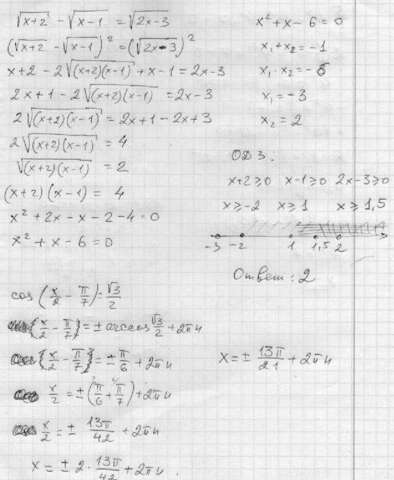 √(x+2) - √(x-1) = √(2x-3)
(√(x+2) - √(x-1))² = (√(2x-3))²
x+2-2√((x+2)(x-1)) + x-1 = 2x-3
2x+1-2√((x+2)(x-1)) = 2x-3
2√((x+2)(x-1)) = 2x+1-2x+3
2√((x+2)(x-1)) = 4
√((x+2)(x-1)) = 2
(x+2)(x-1) = 4
x²+2x-x-2-4=0
x²+x-6=0
x²+x-6=0
x₁+x₂=-1
x₁·x₂=-6
x₁=-3
x₂=2
ОДЗ.
x+2≥0 x-1≥0 2x-3≥0
x≥-2 x≥1 x≥1,5
-3 -2 1 1,5 2
Ответ: 2
cos(x/2 - π/7) = √3/2
(x/2 - π/7) = ± arccos √3/2 + 2πn
(x/2 - π/7) = ± π/6 + 2πn
x/2 = ±(π/6 + π/7) + 2πn
x/2 = ± 13π/42 + 2πn
x = ± 2·13π/42 + 2πn.
x = ± 13π/21 + 2πn